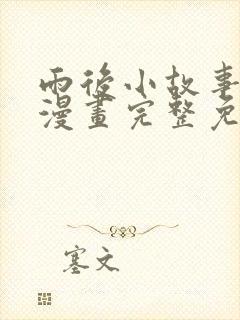 雨後小故事
漫畫完整免
塞文